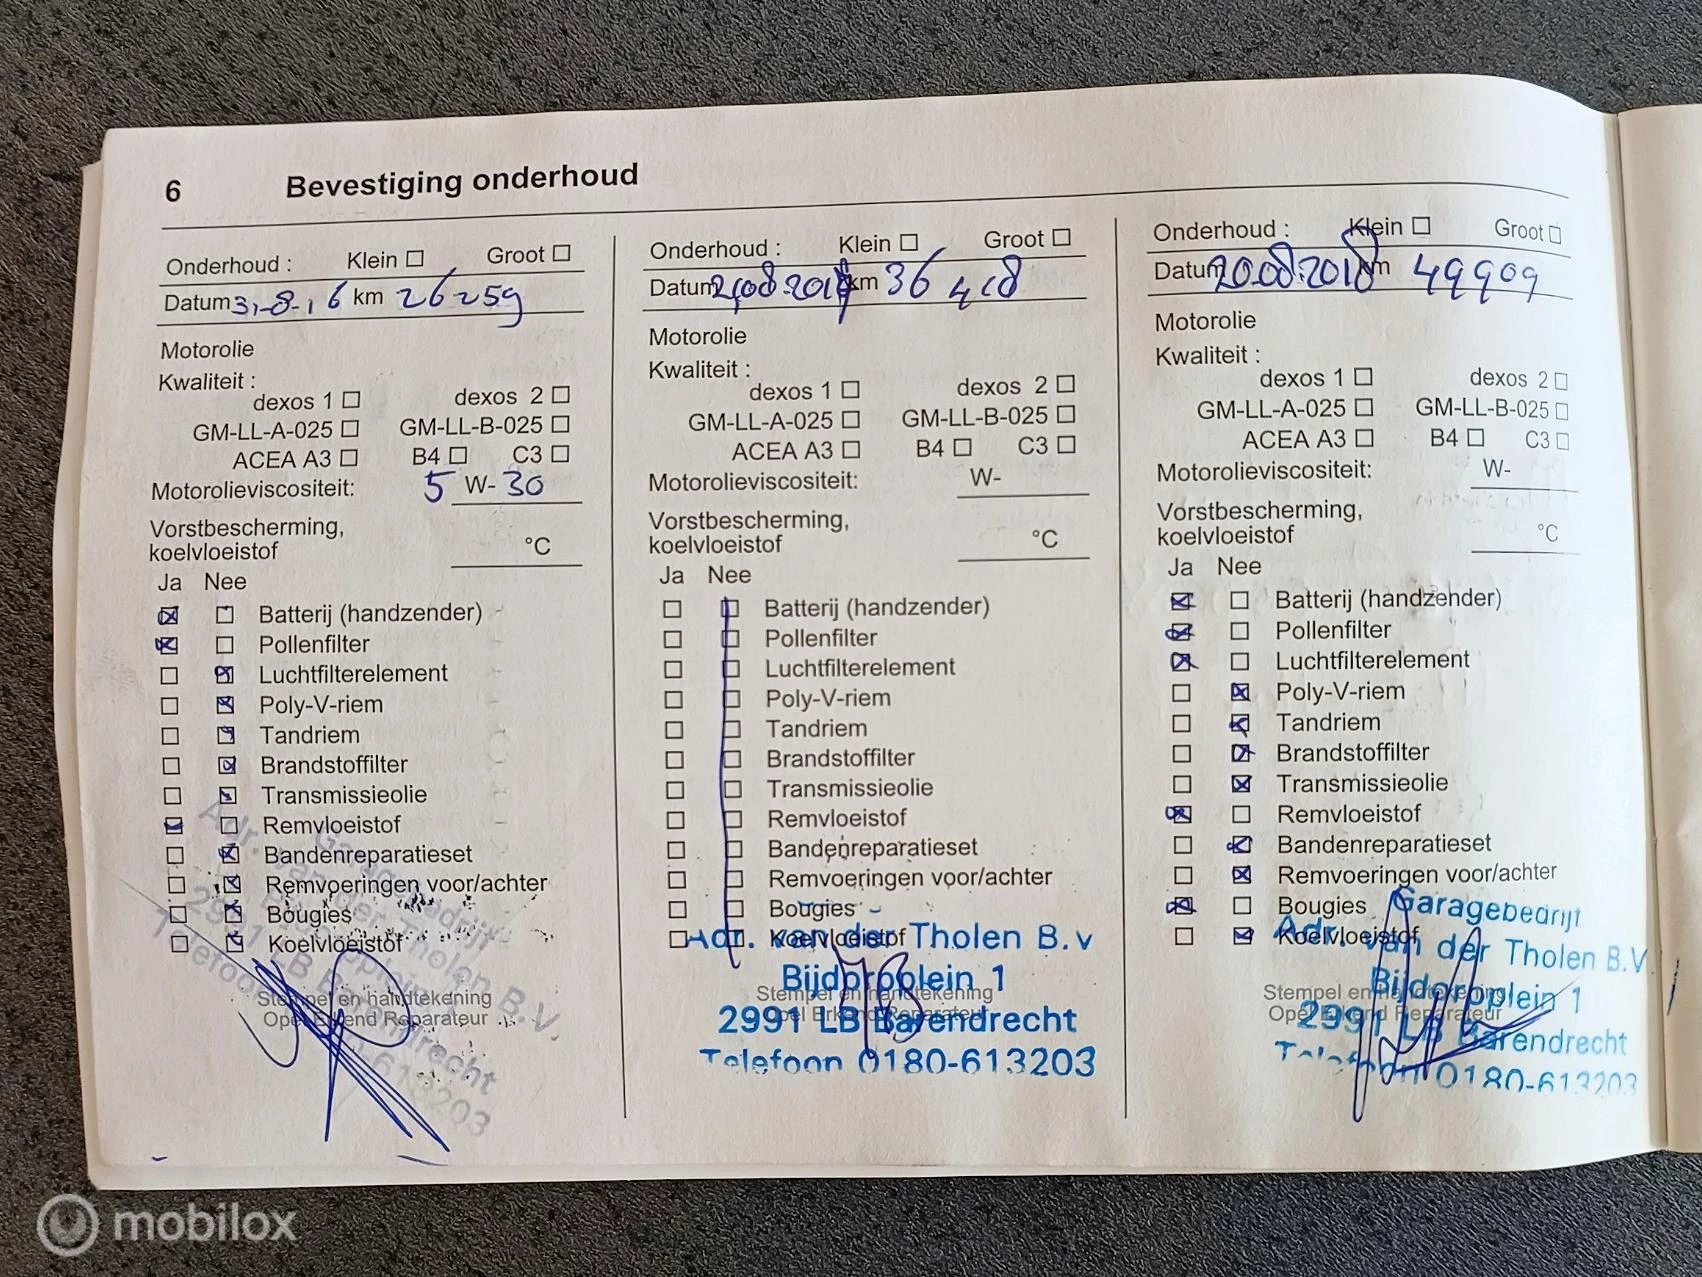 6 Bevestiging onderhoud
Onderhoud : Klein Groot
Datum 31-8-16 km 26259
Motorolie
Kwaliteit :
dexos 1 dexos 2
GM-LL-A-025 GM-LL-B-025
ACEA A3 B4 C3
Motorolieviscositeit: 5 W- 30
Vorstbescherming,
koelvloeistof °C
Ja Nee
Batterij (handzender)
Pollenfilter
Luchtfilterelement
Poly-V-riem
Tandriem
Brandstoffilter
Transmissieolie
Remvloeistof
Bandenreparatieset
Remvoeringen voor/achter
Bougies
Koelvloeistof
Stempel en handtekening
Opel Erkend Reparateur
Garagebedrijf
Adr. van der Tholen B.V.
Bijdorpplein 1
2991 LB Barendrecht
Telefoon 0180-613203
Onderhoud : Klein Groot
Datum km 36 418
Motorolie
Kwaliteit :
dexos 1 dexos 2
GM-LL-A-025 GM-LL-B-025
ACEA A3 B4 C3
Motorolieviscositeit: W-
Vorstbescherming,
koelvloeistof °C
Ja Nee
Batterij (handzender)
Pollenfilter
Luchtfilterelement
Poly-V-riem
Tandriem
Brandstoffilter
Transmissieolie
Remvloeistof
Bandenreparatieset
Remvoeringen voor/achter
Bougies
Koelvloeistof
Adr. van der Tholen B.v
Bijdorpplein 1
Stempel en handtekening
Opel Erkend Reparateur
2991 LB Barendrecht
Telefoon 0180-613203
Onderhoud : Klein Groot
Datum 20.08.2018 km 49909
Motorolie
Kwaliteit :
dexos 1 dexos 2
GM-LL-A-025 GM-LL-B-025
ACEA A3 B4 C3
Motorolieviscositeit: W-
Vorstbescherming,
koelvloeistof °C
Ja Nee
Batterij (handzender)
Pollenfilter
Luchtfilterelement
Poly-V-riem
Tandriem
Brandstoffilter
Transmissieolie
Remvloeistof
Bandenreparatieset
Remvoeringen voor/achter
Bougies
Koelvloeistof
Garagebedrijf
Adr. van der Tholen B.V.
Bijdorpplein 1
Stempel en handtekening
Opel Erkend Reparateur
2991 LB Barendrecht
Telefoon 0180-613203
mobilox